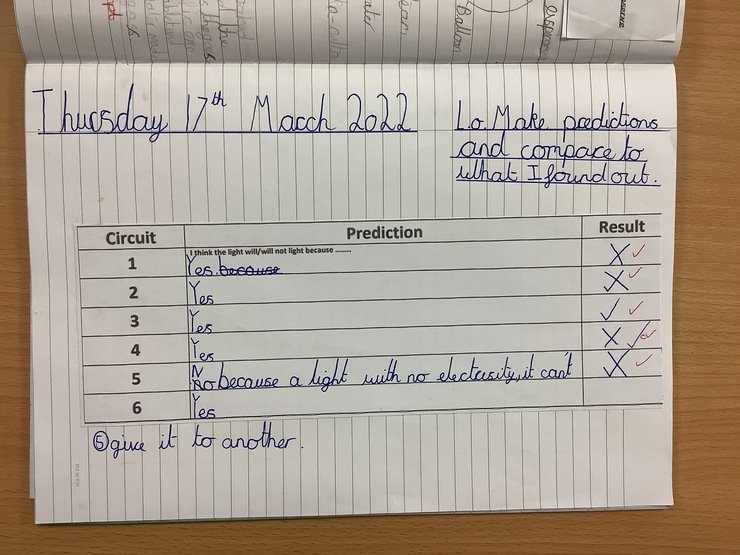 Balloon
Thursday 17th March 2022
L.o. Make predictions
and compare to
what I found out.
Circuit Prediction Result
I think the light will/will not light because ........
1 Yes because X ✓
2 Yes X ✓
3 Yes ✓ ✓
4 Yes X ✓
5 No because a light with no electrisity, it can't X ✓
6 Yes
⑤ give it to another.